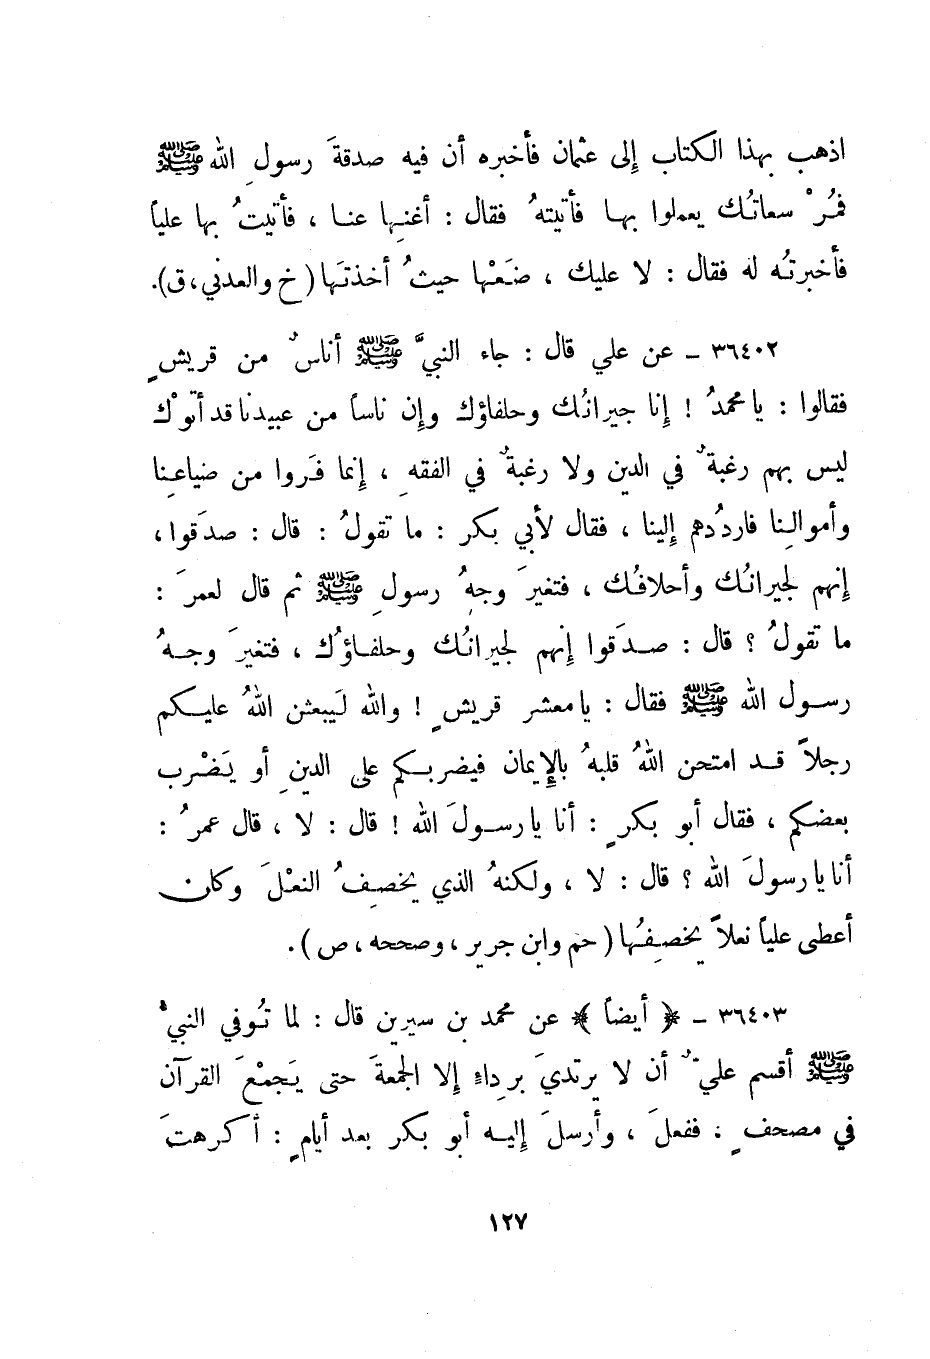 اذهب بهذا الكتاب إلى عثمان فأخبره أن فيه صدقةَ رسولِ الله ﷺ
فمُرْ سعاتُك يعملوا بها فأتيتهُ فقال : أغنِها عنا ، فأتيتُ بها علياً
فأخبرتُه له فقال : لا عليك ، ضَعْها حيثُ أخذتَها ( خ والعدني ، ق ).
٣٦٤٠٢ ـ عن علي قال : جاء النبيَّ ﷺ أناسٌ من قريشٍ
فقالوا : يا محمدُ ! إنا جيرانُك وحلفاؤك وإن ناساً من عبيدنا قد أتوْك
ليس بهم رغبةٌ في الدين ولا رغبةٌ في الفقهِ ، إنما فَروا من ضياعِنا
وأموالِنا فاردُدهم إلينا ، فقال لأبي بكر : ما تقولُ : قال : صدَقوا ،
إنهم لجيرانُك وأحلافُك ، فتغيرَ وجهُ رسولِ ﷺ ثم قال لعمرَ :
ما تقولُ ؟ قال : صدَقوا إنهم لجيرانُك وحلفاؤُك ، فتغيرَ وجهُ
رسول الله ﷺ فقال : يا معشر قريشٍ ! والله لَيبعثن اللهُ عليكم
رجلاً قد امتحن اللهُ قلبهُ بالإيمان فيضربكم على الدينِ أو يَضْرب
بعضكم ، فقال أبو بكرٍ : أنا يا رسولَ الله ! قال : لا ، قال عمرُ :
أنا يا رسولَ الله ؟ قال : لا ، ولكنهُ الذي يخصِفُ النعْلَ وكان
أعطى علياً نعلاً يخصِفُها ( حم وابن جرير ، وصححه ، ص ) .
٣٦٤٠٣ ـ ﴿ أيضاً ﴾ عن محمد بن سيرين قال : لما تُوفي النبيُّ
ﷺ أقسم عليٌّ أن لا يرتديَ برداءٍ إلا الجمعةَ حتى يَجمْعَ القرآن
في مصحفٍ ; ففعلَ ، وأرسلَ إليه أبو بكر بعد أيامٍ : أكرهتَ
١٢٧